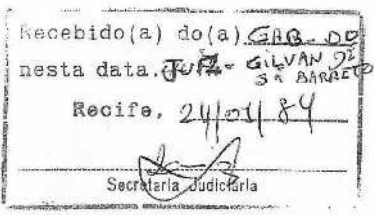 Recebido(a) do(a) GAB. DO
nesta data. JUIZ - GILVAN DE
SÁ BARRETO
Recife, 24/01/84
Secretaria Judiciária